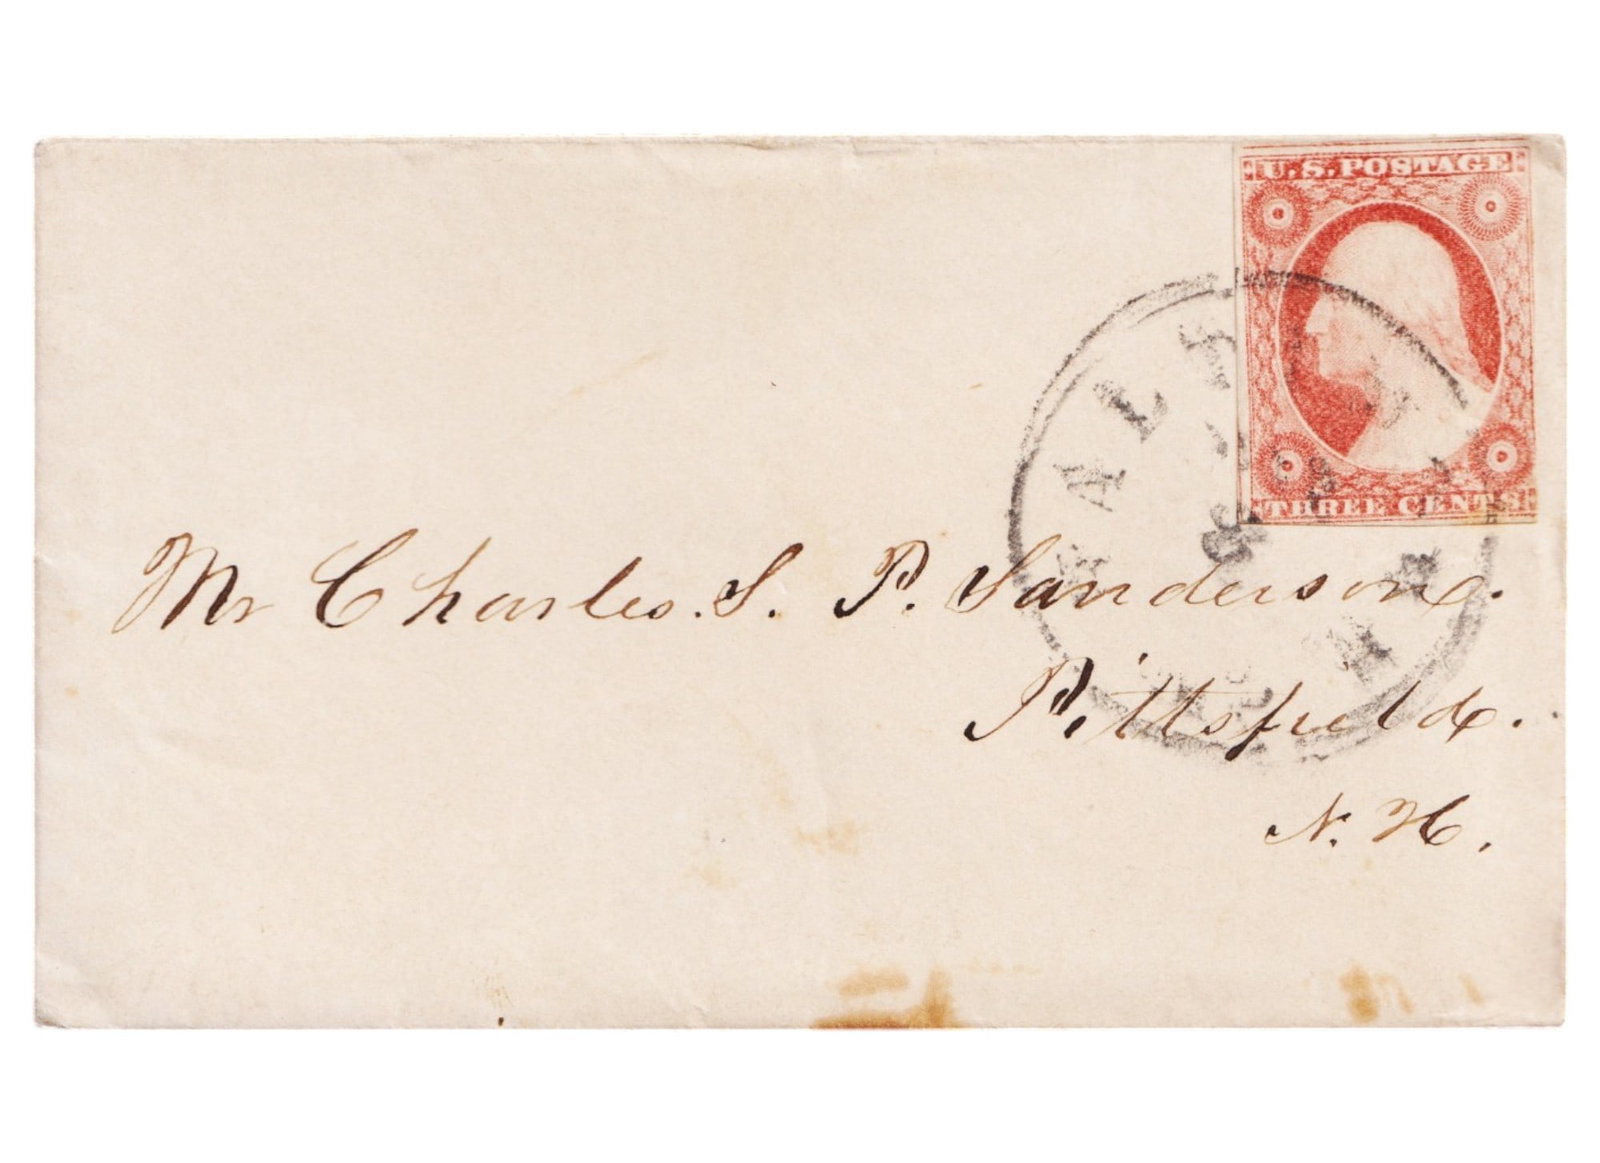 U.S. POSTAGE
THREE CENTS
Mr Charles. S. P. Sanderson.
Pittsfield.
N. H.